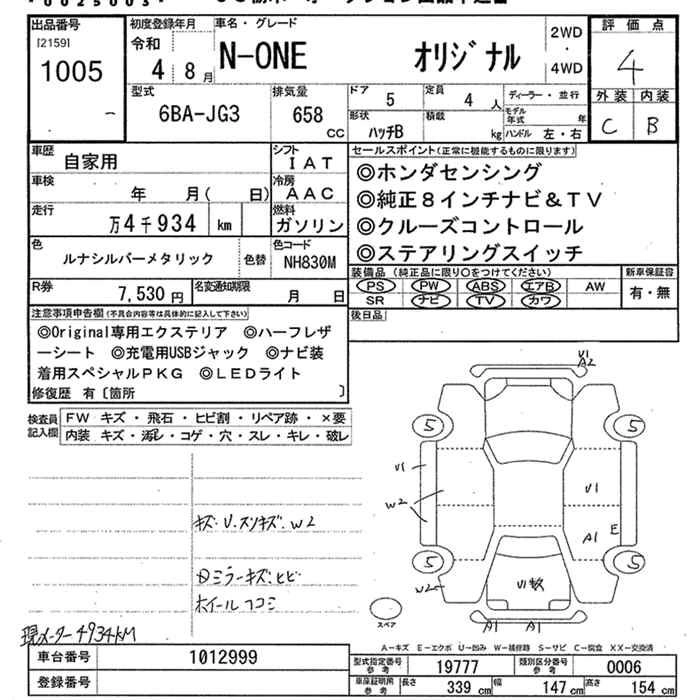 出品番号
[2159]
1005
初度登録年月
令和
4 8月
車名・グレード
N-ONE オリジナル
2WD
・
4WD
評価点
4
外装 内装
C B
型式
6BA-JG3
排気量
658
CC
ドア
5
定員
4 人
ディーラー・並行
形状
ハッチB
積載
kg
モデル年式
年
ハンドル 左・右
車歴
自家用
車検
年 月( 日)
走行
万4千934 km
色
ルナシルバーメタリック
色替
シフト
IAT
冷房
AAC
燃料
ガソリン
色コード
NH830M
R券
7,530 円
名変通知期限
月 日
セールスポイント(正常に機能するものに限ります)
◎ホンダセンシング
◎純正8インチナビ&TV
◎クルーズコントロール
◎ステアリングスイッチ
装備品 (純正品に限り○をつけてください)
PS PW ABS エアB AW
SR ナビ TV カワ
新車保証書
有・無
後日品
注意事項申告欄(不具合内容等は具体的に記入して下さい)
◎Original専用エクステリア ◎ハーフレザ
ーシート ◎充電用USBジャック ◎ナビ装
着用スペシャルPKG ◎LEDライト
修復歴 有〔箇所 〕
検査員
記入欄
FW キズ・飛石・ヒビ割・リペア跡・×要
内装 キズ・汚レ・コゲ・穴・スレ・キレ・破レ
キズ・U・スリキズ・W2
ミラーキズ・ヒビ
ホイールフコミ
現メーター4934KM
V1
A2
5
5
V1
W2
V1
A1
E
5
5
W2
スペア
A1
A1
A-キズ E-エクボ U-凹み W-補修跡 S-サビ C-腐食 XX-交換済
車台番号
1012999
登録番号
型式指定番号
参考
19777
類別区分番号
参考
0006
車庫証明用
参考
長さ
339 cm
幅
147 cm
高さ
154 cm